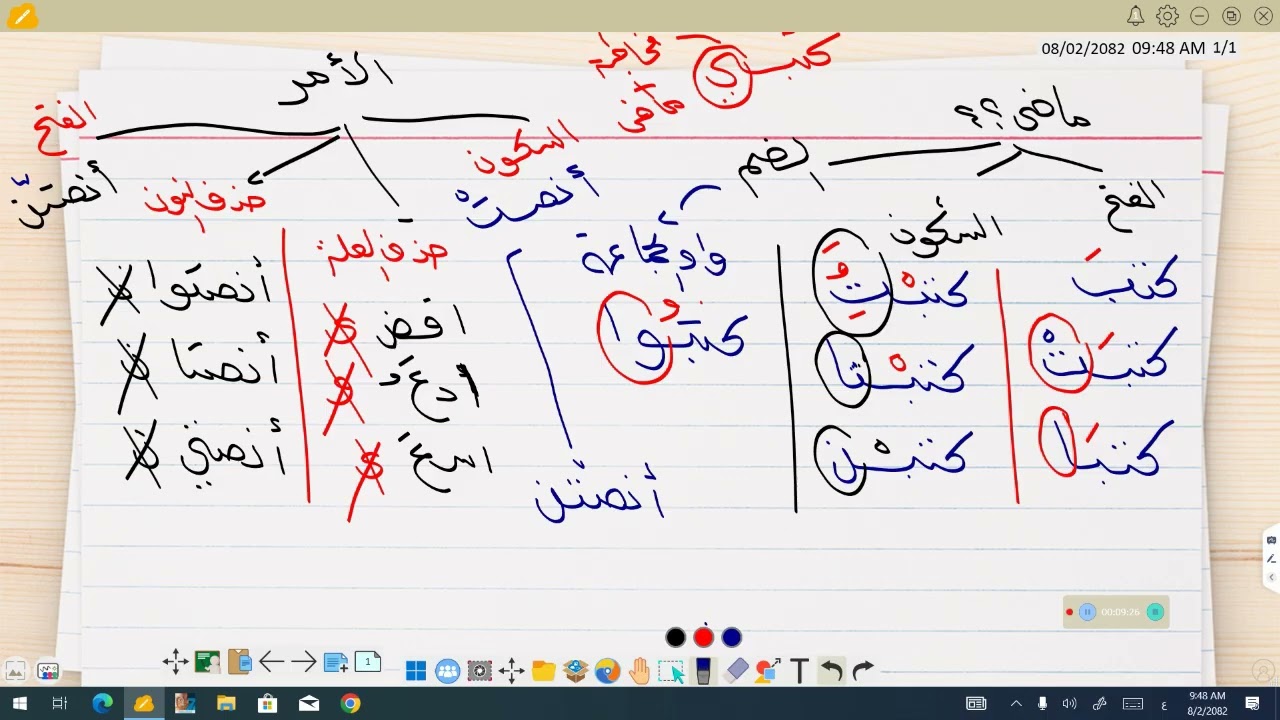 08/02/2082 09:48 AM 1/1
كتبـي
ماضي؟؟
الفتح
كتبَ
كتبَتْ
كتبَا
السكون
كتبْتُ
كتبْنا
كتبْن
الضم
واو الجماعة
كتبُوا
الأمر
السكون
أنصتْ
أنصتْن
حذف العلة
اقضِ ي
أدعُ و
اسعَ ى
حذف النون
أنصتوا ن
أنصتا ن
أنصتي ن
الفتح
أنصتنّ
00:09:26
1
T
9:48 AM
8/2/2082